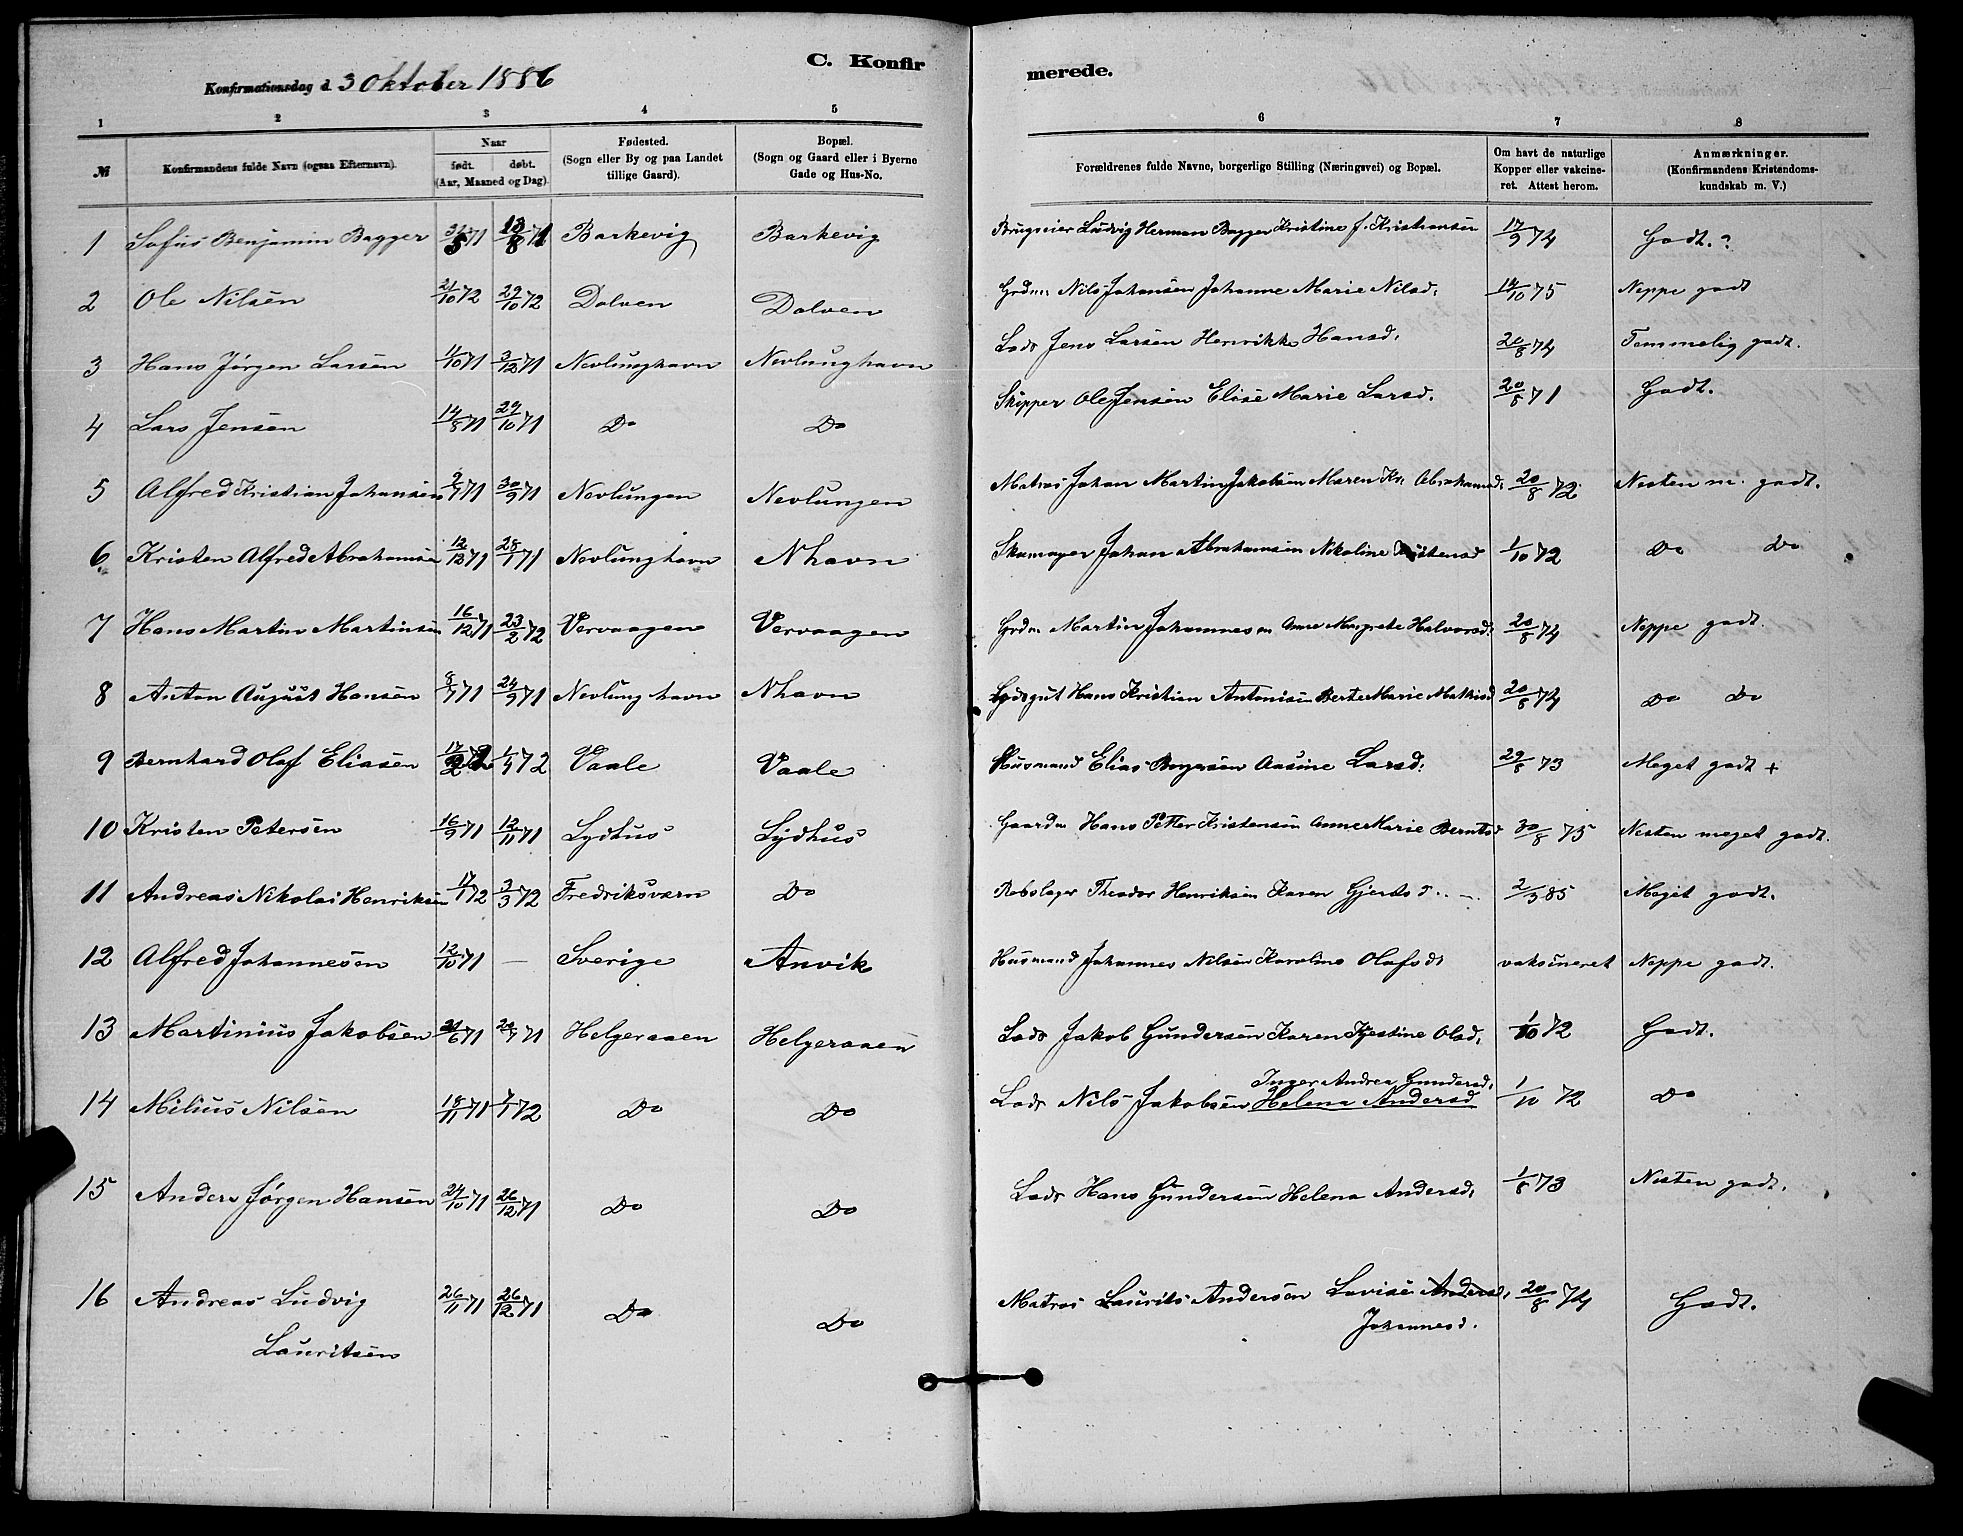 C. Konfir merede.
Konfirmationsdag d. 3 Oktober 1886
1 2 3 4 5 6 7 8
№ Konfirmandens fulde Navn (ogsaa Efternavn). Naar født. døbt. (Aar, Maaned og Dag). Fødested. (Sogn eller By og paa Landet tillige Gaard). Bopæl. (Sogn og Gaard eller i Byerne Gade og Hus-No. Forældrenes fulde Navne, borgerlige Stilling (Næringsvei) og Bopæl. Om havt de naturlige Kopper eller vakcineret. Attest herom. Anmærkninger. (Konfirmandens Kristendomskundskab m. V.)
1 Sofus Benjamin Bagger 31/5 71 13/8 71 Barkevig Barkevig Brugseier Ludvig Herman Bagger Kristine f. Kristiansen 17/9 74 Godt.?
2 Ole Nilsen 21/10 72 29/10 72 Dolven Dolven Grdm. Nils Johansen Johanne Marie Nilsd. 14/10 75 Neppe godt
3 Hans Jørgen Larsen 1/10 71 3/12 71 Nevlunghavn Nevlunghavn Lods Jens Larsen Henrikke Hansd. 20/8 74 Temmelig godt.
4 Lars Jensen 14/8 71 29/10 71 Do Do Skipper Ole Jensen Elise Marie Larsd. 20/8 71 Godt.
5 Alfred Kristian Johansen 2/7 71 30/9 71 Nevlungen Nevlungen Matros Johan Martin Jakobsen Maren Kr. Abrahamsd. 20/8 72 Nesten m. godt.
6. Kristen Alfred Abrahamsen 12/12 71 28/1 71 Nevlunghavn Nhavn Skomager Johan Abrahamsen Nikoline Kristensd 1/10 72 Do Do
7 Hans Martin Martinsen 16/12 71 23/2 72 Vervaagen Vervaagen Grdm Martin Johannesen Anne Margrete Halvorsd. 20/8 74 Neppe godt.
8 Anton August Hansen 8/7 71 24/9 71 Nevlunghavn Nhavn Hans Kristian Antonisen Berte Marie Mathisd 20/8 74 Do Do
9 Bernhard Olaf Eliasen 17/2 72 1/4 72 Vaale Vaale Husmand Elias Borgersen Aasine Larsd. 29/8 73 Meget godt +
10 Kristen Petersen 16/9 71 12/11 71 Lydhus Lydhus Gaardm Hans Petter Kristensen Anne Marie Berntsd 30/8 75 Nesten meget godt.
11 Andreas Nikolai Henriksen 17/1 72 3/3 72 Fredriksværn Do Rebslager Theodor Henriksen Karen Gjertsd. 2/3 85 Meget godt.
12 Alfred Johannesen 12/10 71 — Sverige Anvik Husmand Johannes Nilsen Karoline Olafsdt vaksineret Neppe godt.
13 Martinius Jakobsen 21/6 71 20/7 71 Helgeraaen Helgeraaen Lods Jakob Gundersen Karen Kjestine Olsd. 1/10 72 Godt.
Inger Andrea Gundersd.
14 Milius Nilsen 18/11 71 7/1 72 Do Do Lods Nils Jakobsen Helena Andersd 1/10 72 Do
15 Anders Jørgen Hansen 24/10 71 26/12 71 Do Do Lods Hans Gundersen Helena Andersd. 1/8 73 Nesten godt.
16 Andreas Ludvig 26/11 71 26/12 71 Do Do Matros Laurits Andersen Lovise Andersd. 20/8 74 Godt.
Lauritsen Johannesd.